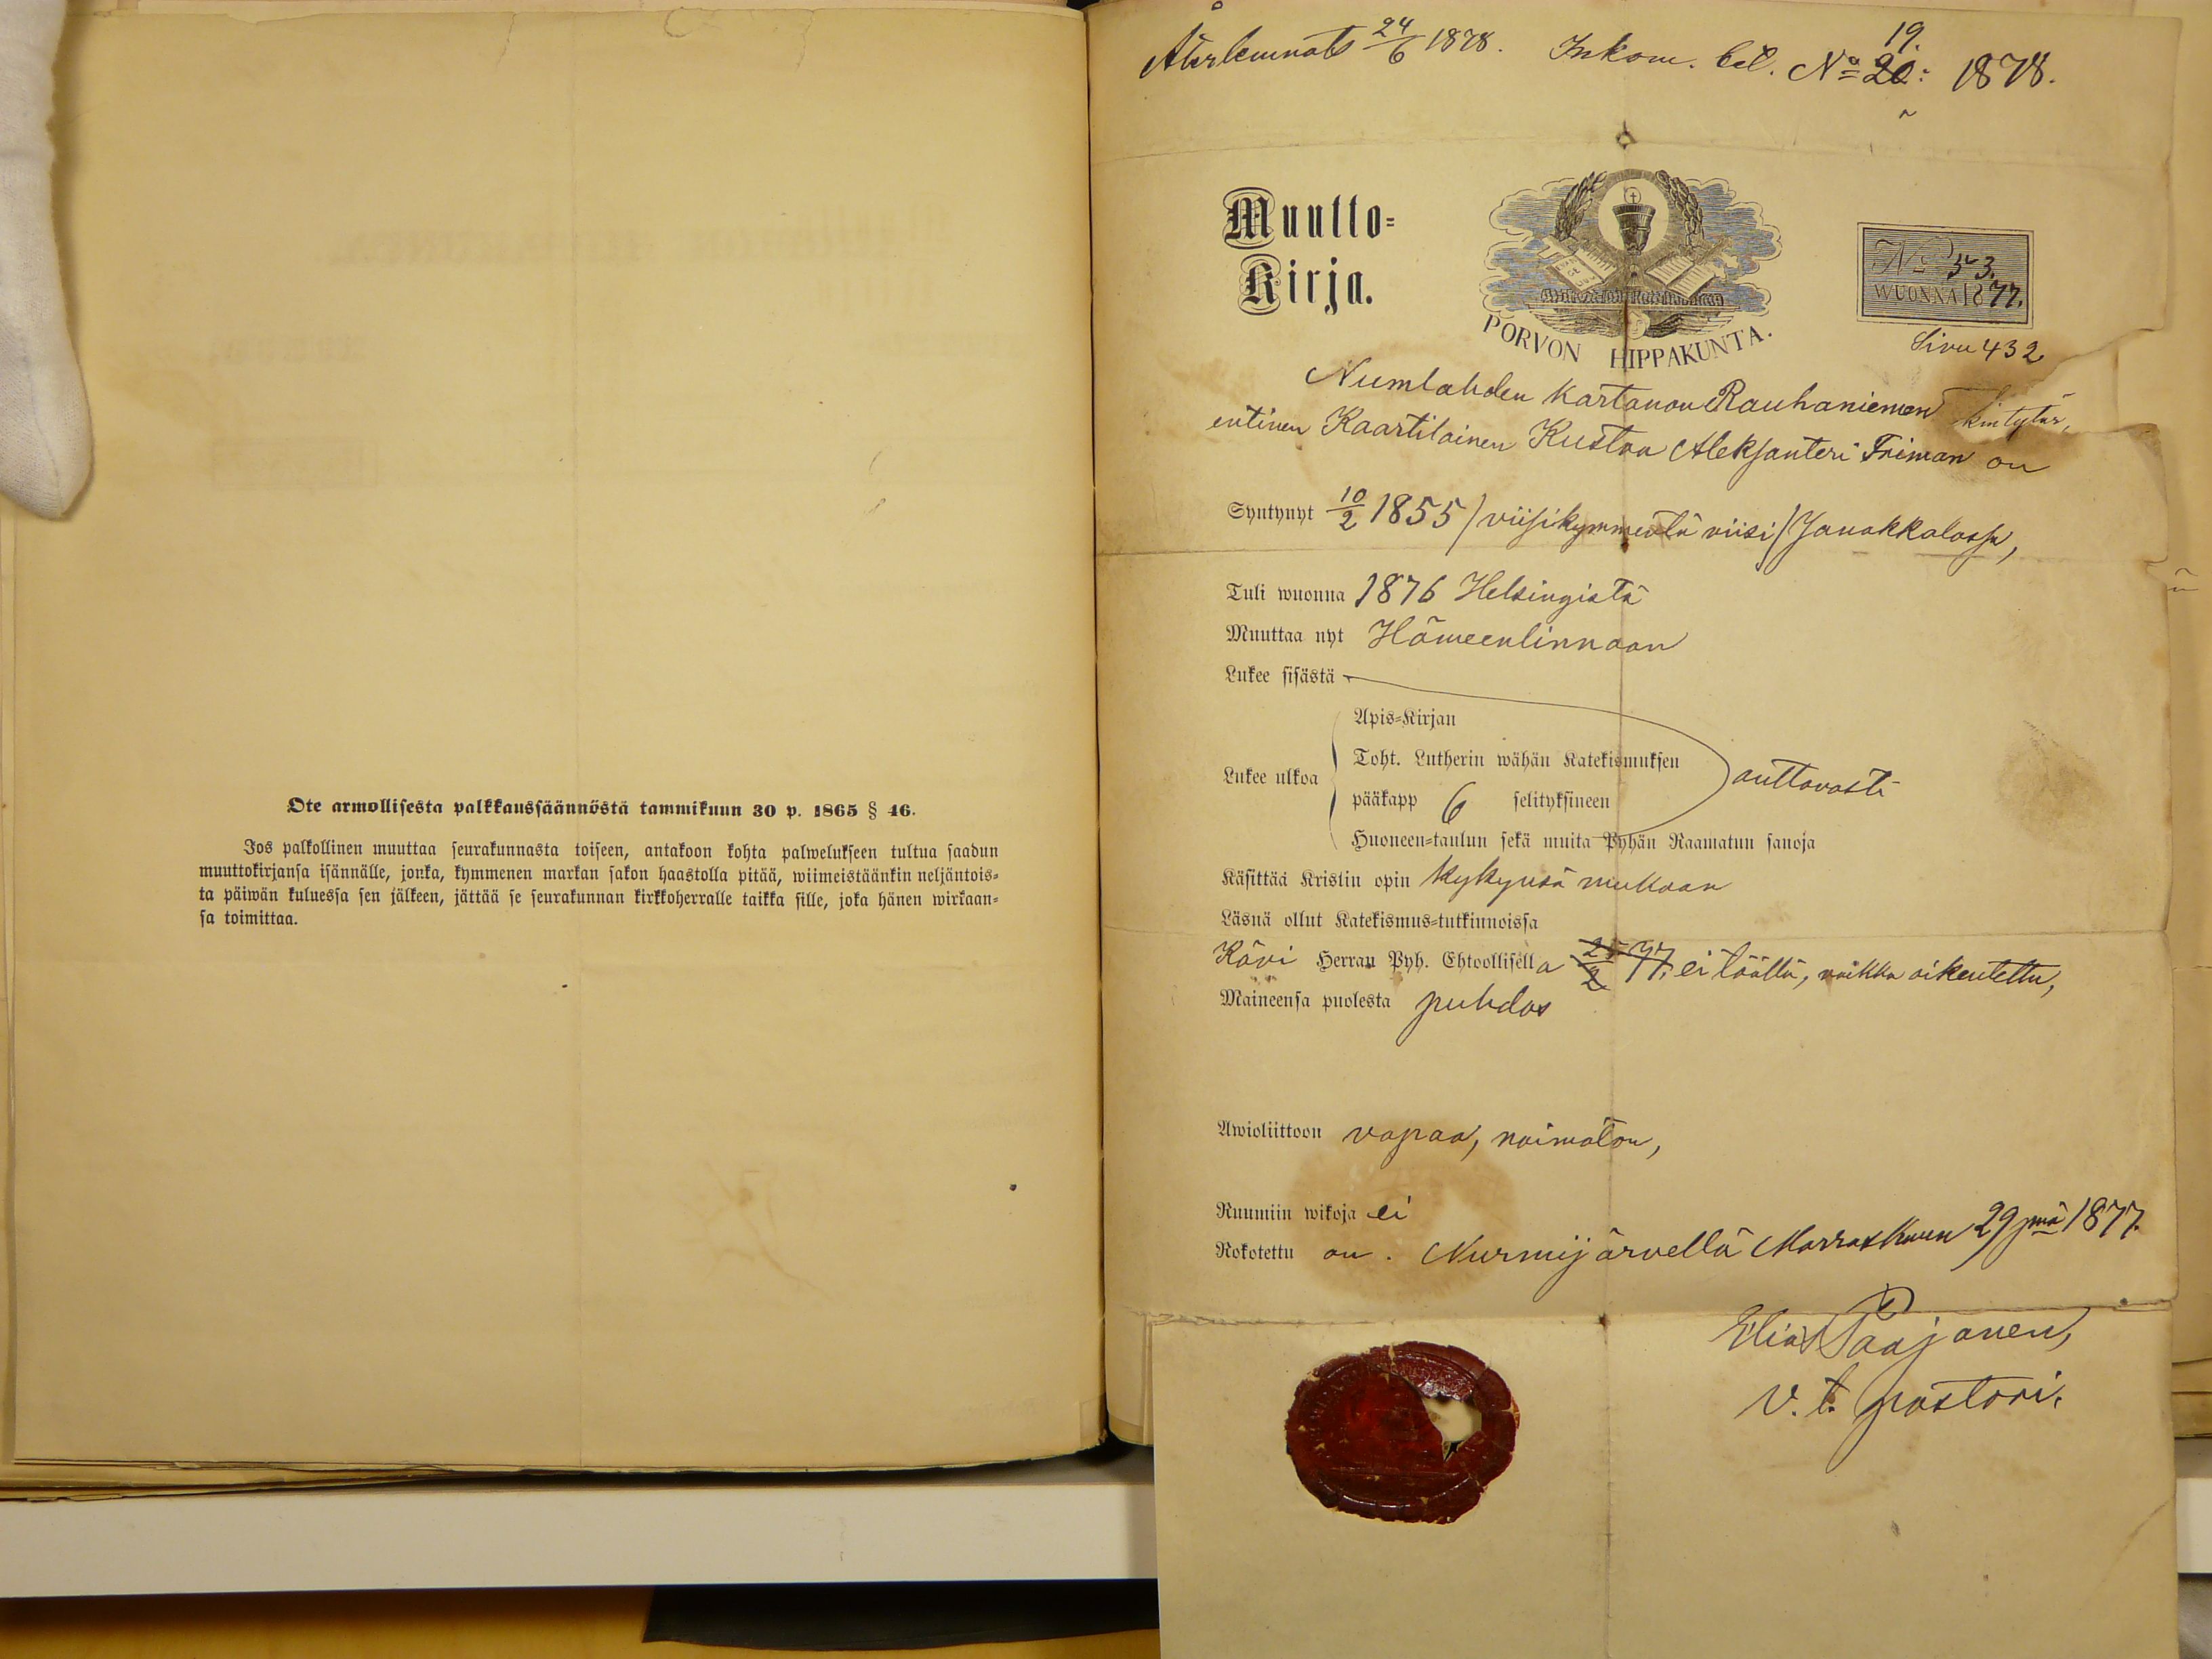 Ote armollisesta palkkaussäännöstä tammikuun 30 p. 1865 § 46.
Jos palkollinen muuttaa seurakunnasta toiseen, antakoon kohta palwelukseen tultua saadun
muuttokirjansa isännälle, jonka, kymmenen markan sakon haastolla pitää, wiimeistäänkin neljäntois=
ta päiwän kuluessa sen jälkeen, jättää se seurakunnan kirkkoherralle taikka sille, joka hänen wirkaan=
sa toimittaa.
Återlemnats 24/6 1878. Inkom. bet. No 20: 19. 1878.
Muutto=
Kirja.
PORVON HIPPAKUNTA.
No 53.
WUONNA 1877.
Sivu 432
Numlahden kartanon Rauhaniemen
entinen Kaartilainen Kustaa Aleksanteri Friman on
Syntynyt 10/2 1855 / viisikymmentä viisi / Janakkalassa,
Tuli wuonna 1876 Helsingistä
Muuttaa nyt Hämeenlinnaan
Lukee sisästä
Lukee ulkoa
Apis=Kirjan
Toht. Lutherin wähän Katekismuksen
pääkapp 6 selityksineen
Huoneen=taulun sekä muita Pyhän Raamatun sanoja
auttavasti
Käsittää Kristin opin kykynsä mukaan
Läsnä ollut Katekismus=tutkinnoissa
Kävi Herran Pyh. Ehtoollisella 25/2 77, ei täällä, vaikka oikeutettu,
Maineensa puolesta puhdas
Awioliittoon vapaa, naimaton,
Ruumiin wikoja ei
Rokotettu on. Nurmijärvellä Marraskuun 29 pnä 1877.
Elias Paajanen,
v. t. pastori.